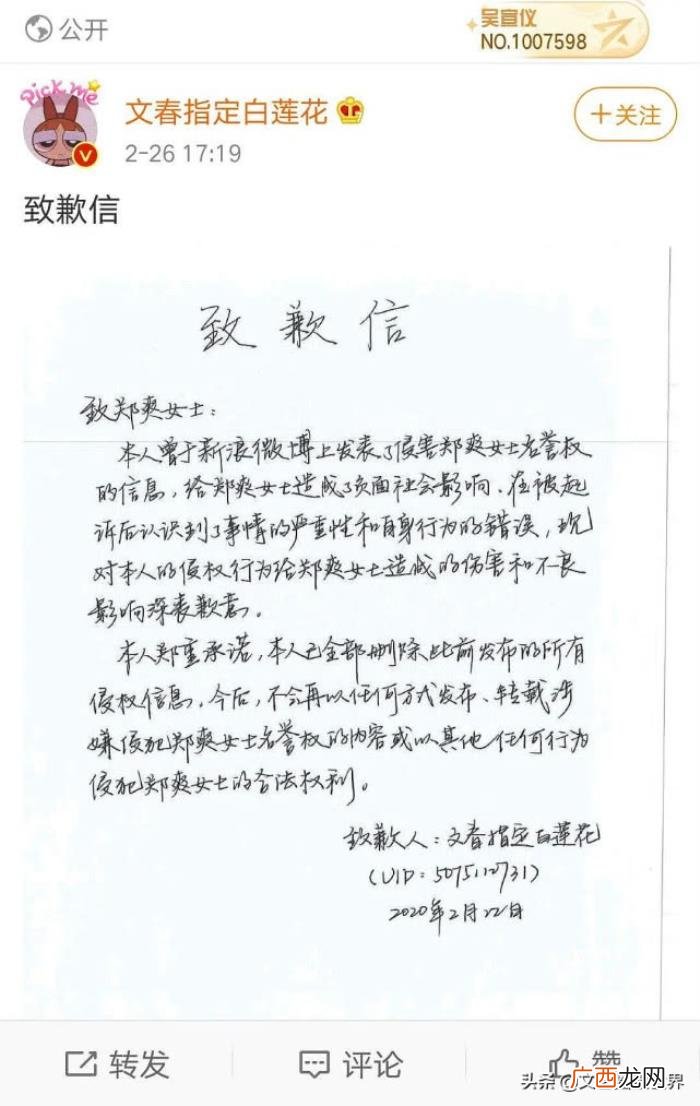 公开
吴宣仪
NO.1007598
Pick me
文春指定白莲花
+关注
2-26 17:19
致歉信
致歉信
致郑爽女士：
本人曾于新浪微博上发表了侵害郑爽女士名誉权
的信息，给郑爽女士造成了负面社会影响、在被起
诉后认识到了事情的严重性和自身行为的错误，现
对本人的侵权行为给郑爽女士造成的伤害和不良
影响深表歉意。
本人郑重承诺，本人已全部删除此前发布的所有
侵权信息，今后，不会再以任何方式发布、转载涉
嫌侵犯郑爽女士名誉权的内容或以其他任何行为
侵犯郑爽女士的合法权利。
致歉人：文春指定白莲花
(UID：5075112731)
2020年2月22日
转发
评论
赞
头条
广西龙网